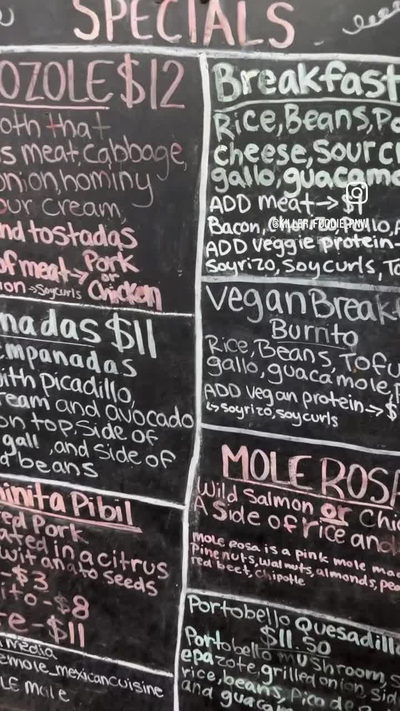 SPECIALS
OZOLE $12
oth that
s meat, cabbage,
onion, hominy
our cream,
nd tostadas
of meat → Pork
or
Chicken
ion → Soycurls
nadas $11
empanadas
ith picadillo,
ream and avocado
on top, side of
gall, and side of
d beans
hinita Pibil
ed Pork
ated in a citrus
with anato seeds
-$3
ito-$8
re-$11
media
emole_mexicancuisine
LE Male
Breakfast
Rice, Beans, Po
cheese, sour cr
gallo, guacamo
ADD meat → $1
Bacon,
@KILLER_FOODIE_PNW
ADD veggie protein-
Soyrizo, Soycurls, To
Vegan Break
Burrito
Rice, Beans, Tofu
gallo, guacamole, P
ADD vegan protein → $
↳ soyrizo, soycurls
MOLE ROSA
Wild Salmon or Chic
A side of rice and
mole Rosa is a pink mole mad
Pine nuts, walnuts, almonds, pea
red beet, chipotle
Portobello Quesadill
$11.50
Portobello mushroom, S
epazote, grilled onion, sid
rice, beans, Pico de
and guaca